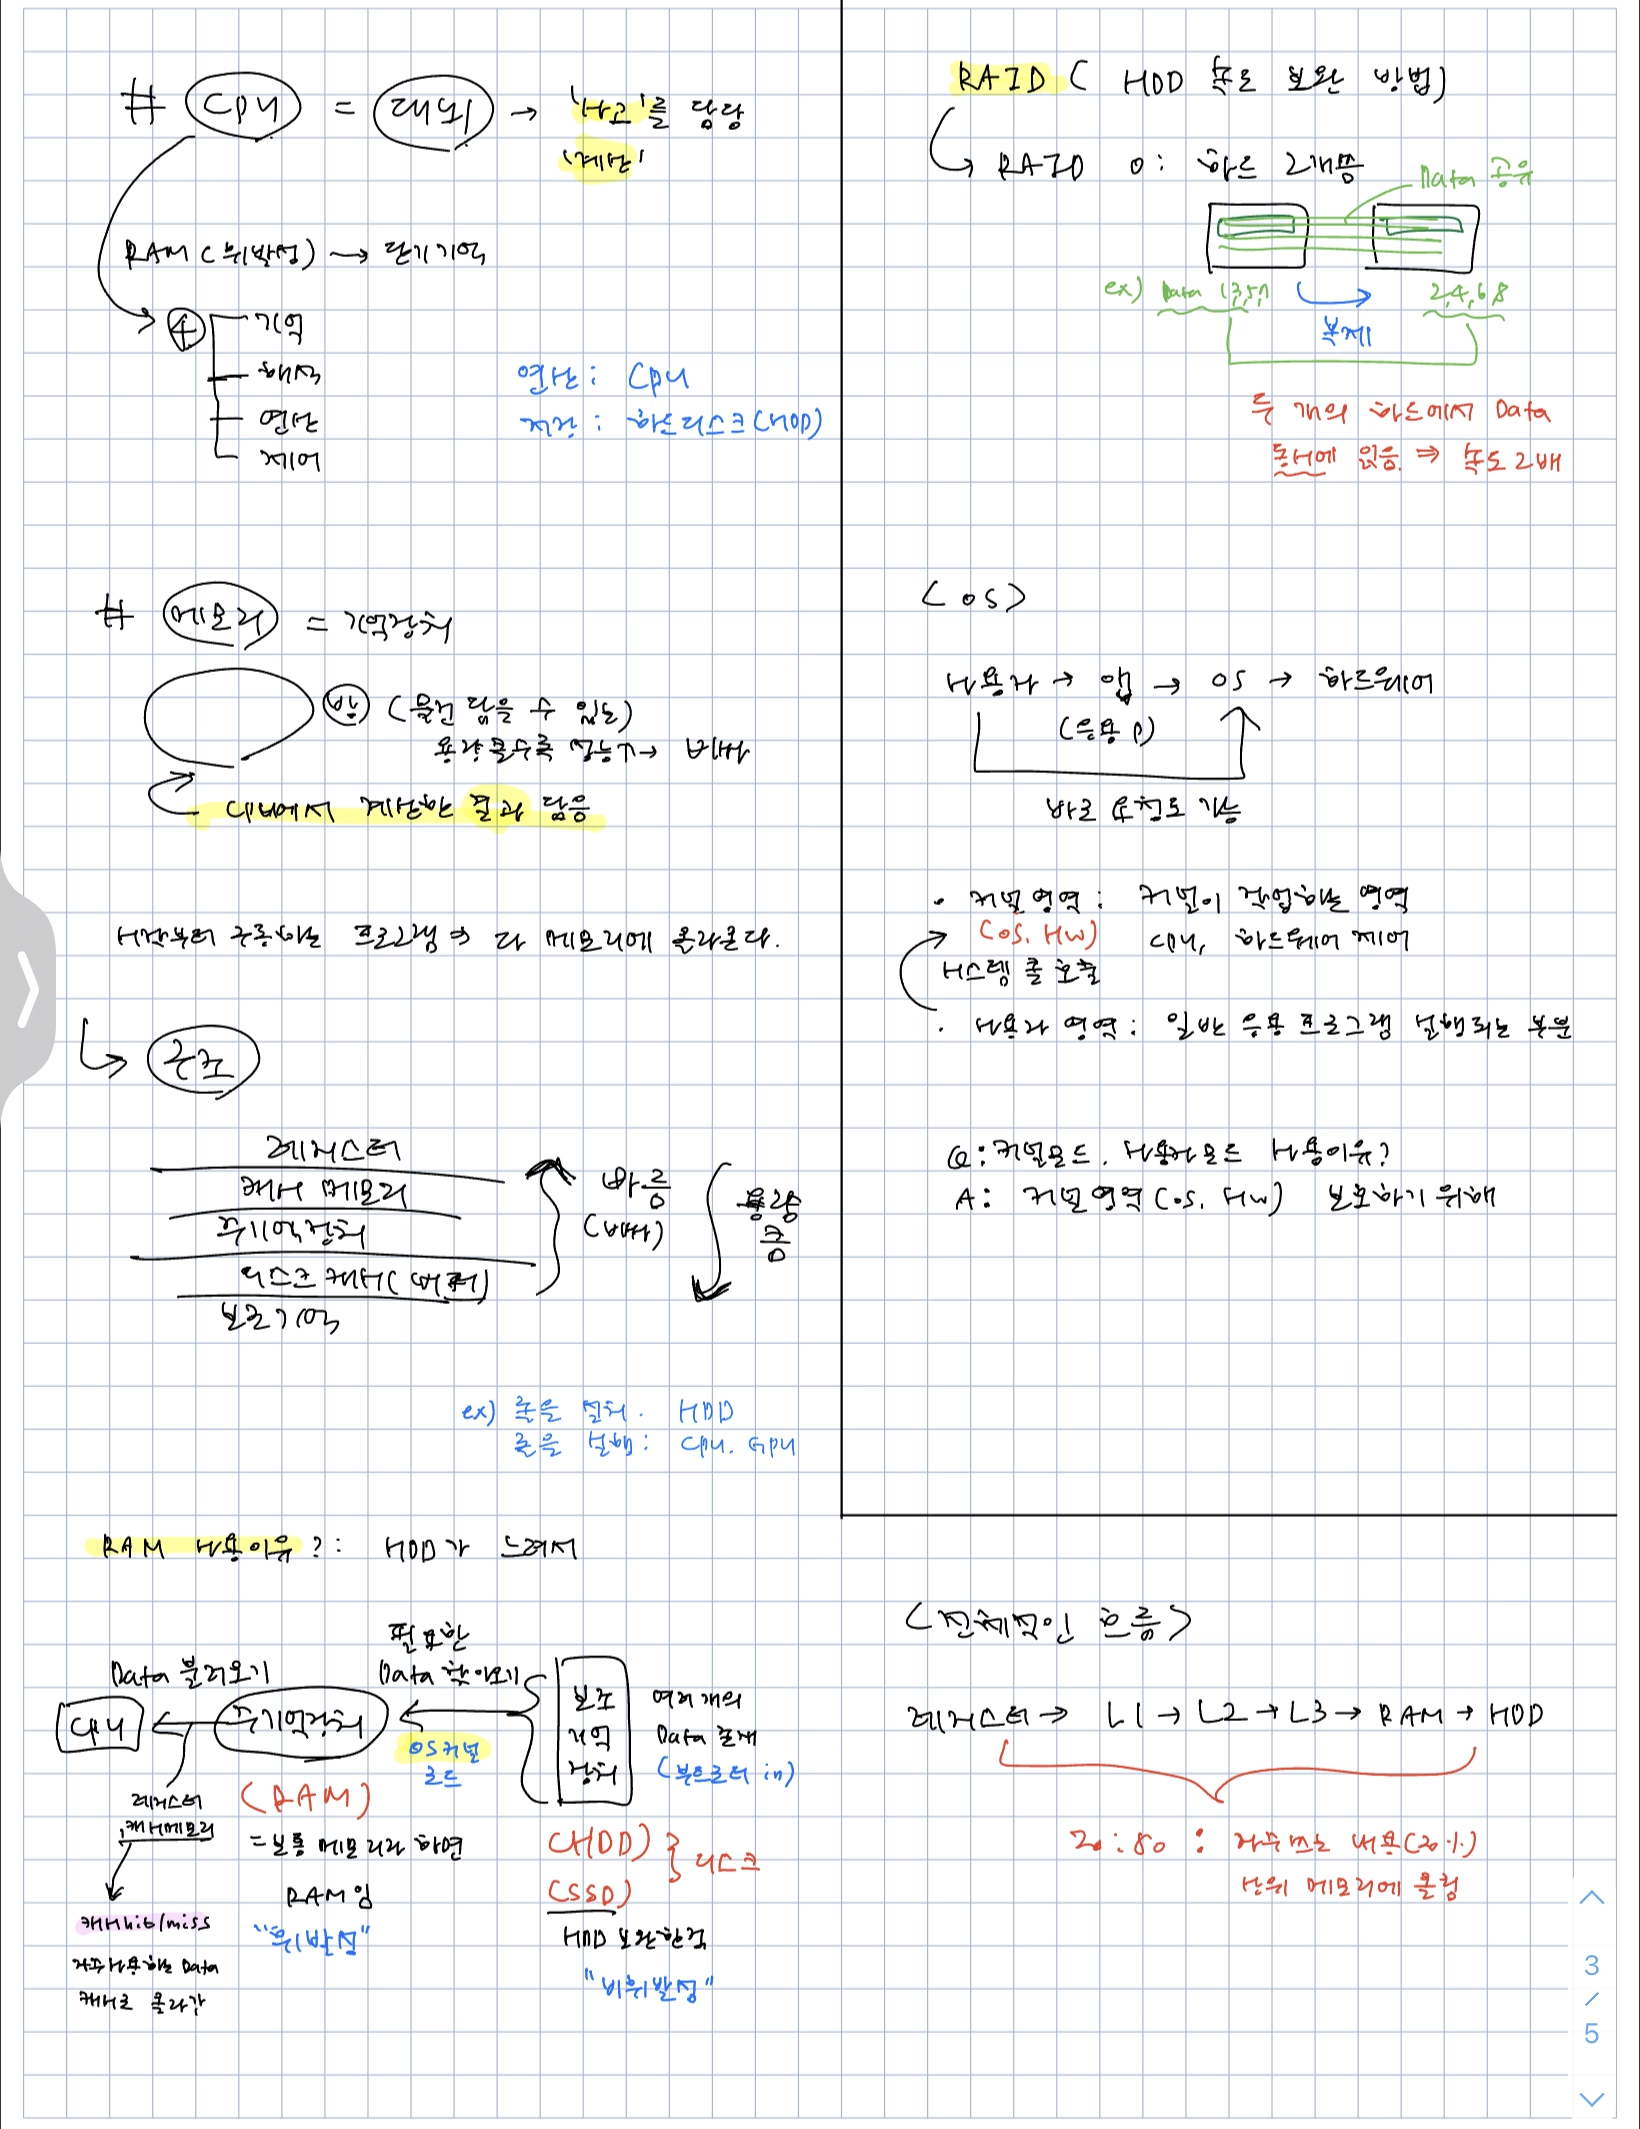 # CPU = 대뇌 → '사고'를 담당
'계산'
RAM(휘발성) → 단기기억
4 기억
해석
연산
제어
연산 : CPU
저장 : 하드디스크(HDD)
# 메모리 = 기억장치
방 (물건 담을 수 있는)
용량클수록 성능↑→ 비싸
CPU에서 계산한 결과 담음
시작부터 구동하는 프로그램 ⇒ 다 메모리에 올라온다.
구조
레지스터
캐시 메모리
주기억장치
디스크 캐시(버퍼)
보조기억
빠름
(비싸)
용량
큼
ex) 롤을 설치. HDD
롤을 실행 : CPU. GPU
RAM 사용이유? : HDD가 느려서
필요한
Data 불러오기
Data 찾아오기
CPU ← 주기억장치
OS커널
로드
보조
기억
장치
여러개의
Data 존재
(부트로더 in)
레지스터
,캐시메모리
캐시hit/miss
자주사용하는 Data
캐시로 올라감
(RAM)
=보통 메모리라 하면
RAM임
"휘발성"
(HDD)
(SSD)
디스크
HDD 보완한것
"비휘발성"
RAID ( HDD 속도 보완 방법)
RAID 0 : 하드 2개쯤
Data 공유
ex) Data 1,3,5,7
2,4,6,8
복제
두 개의 하드에서 Data
동시에 읽음. ⇒ 속도 2배
<OS>
사용자 → 앱 → OS → 하드웨어
(응용 P)
바로 요청도 가능
· 커널 영역 : 커널이 작업하는 영역
(OS. HW) CPU, 하드웨어 제어
시스템 콜 호출
· 사용자 영역 : 일반 응용 프로그램 실행되는 부분
Q : 커널모드. 사용자모드 사용이유?
A : 커널영역(OS. HW) 보호하기 위해
<전체적인 흐름>
레지스터 → L1 → L2 → L3 → RAM → HDD
20 : 80 : 자주쓰는 내용(20%)
상위 메모리에 올림
3
/
5